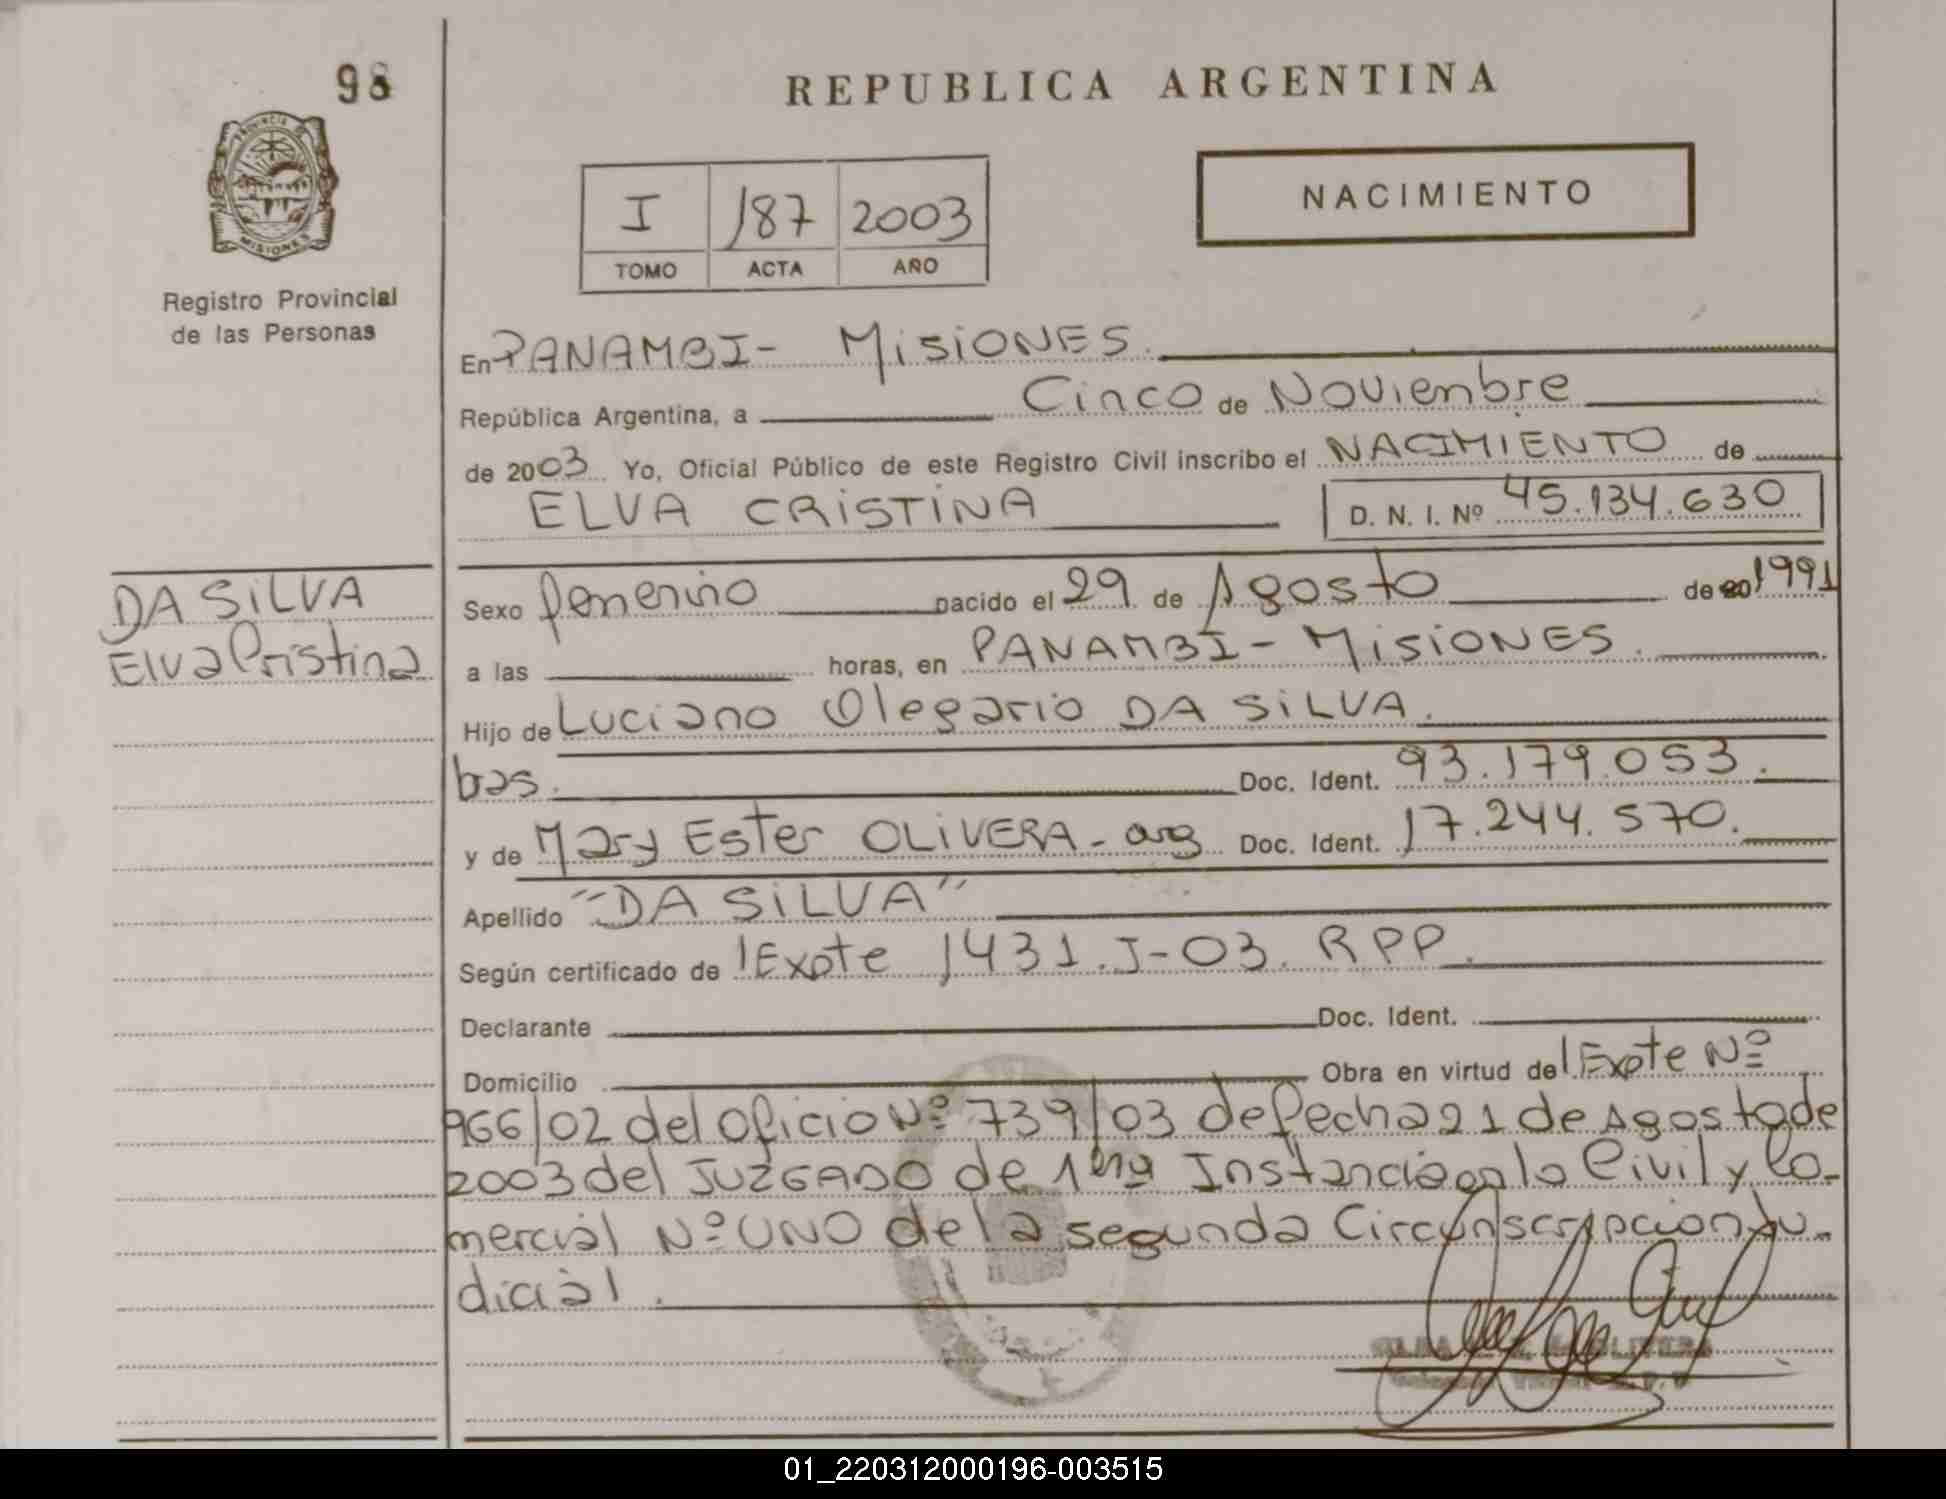 98
REPUBLICA ARGENTINA
PROVINCIA DE
MISIONES
I 187 2003
TOMO ACTA AÑO
NACIMIENTO
Registro Provincial
de las Personas
En PANAMBI- MisiONES.
República Argentina, a Cinco de Noviembre
de 2003 Yo, Oficial Público de este Registro Civil inscribo el NACIMIENTO de
ELVA CRISTINA D. N. I. Nº 45.134.630
DA SiLVA
Elva Cristina
Sexo femenino nacido el 29 de Agosto de 20 1991
a las horas, en PANAMBI - MisiONES.
Hijo de Luciano Olegario DA SiLVA.
bas. Doc. Ident. 93.179.053.
y de Mary Ester OLiVERA - arg Doc. Ident. 17.244.570.
Apellido "DA SiLVA"
Según certificado de Expte 1431.J-03. RPP.
Declarante Doc. Ident.
Domicilio Obra en virtud del Expte Nº
966/02 del Oficio Nº 739/03 de fecha 21 de Agosto de
2003 del JUZGADO de 1era Instancia en lo Civil y Co-
mercial Nº UNO de la segunda Circunscripcion Ju-
dicial.
01_220312000196-003515